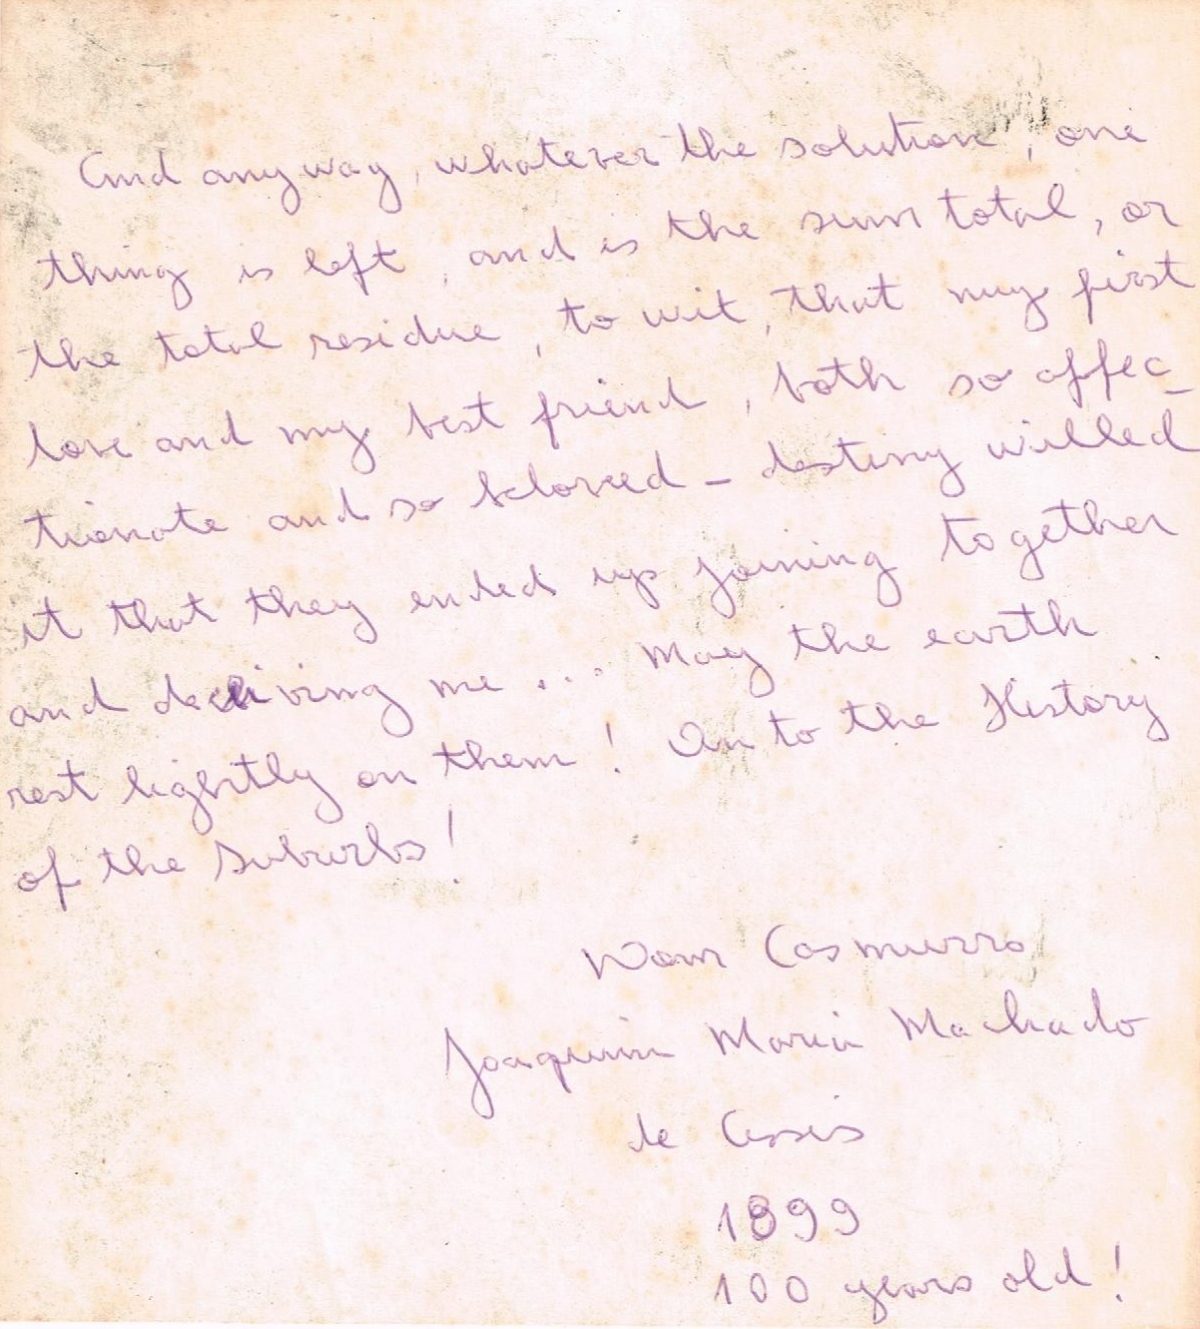 And anyway, whatever the solution, one
thing is left, and is the sum total, or
the total residue, to wit, that my first
love and my best friend, both so affec-
tionate and so beloved - destiny willed
it that they ended up joining together
and deceiving me... May the earth
rest lightly on them! On to the History
of the Suburbs!
Dom Casmurro
Joaquim Maria Machado
de Assis
1899
100 years old!